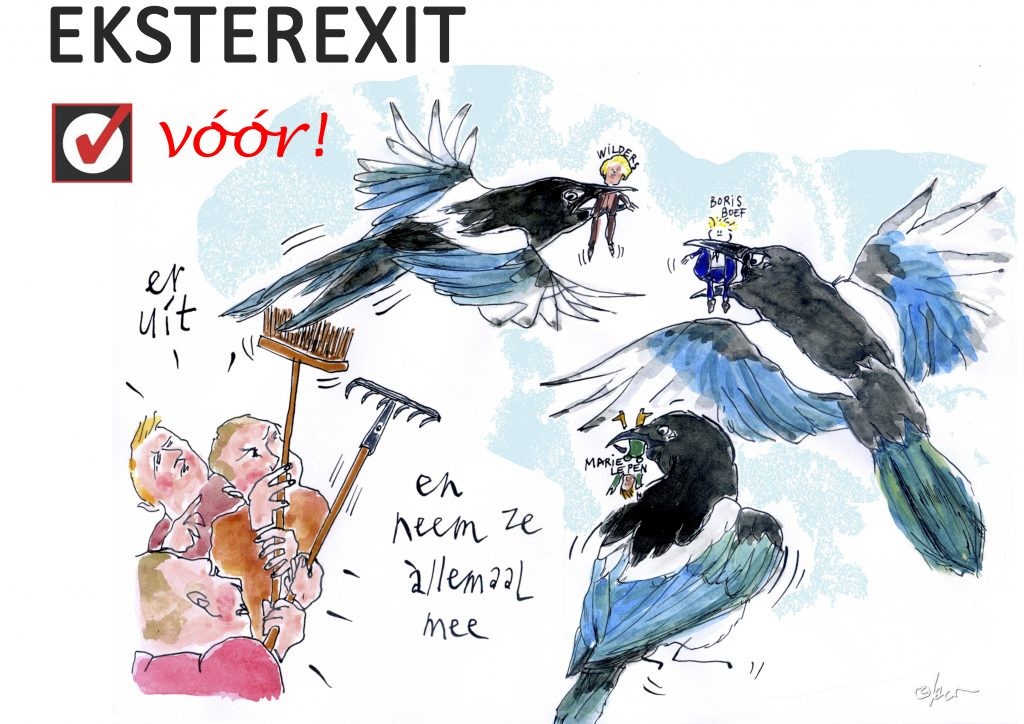 EKSTEREXIT
vóór!
WILDERS
BORIS
BOEF
er
uit
MARIE
LE PEN
en
neem ze
àllemaal
mee